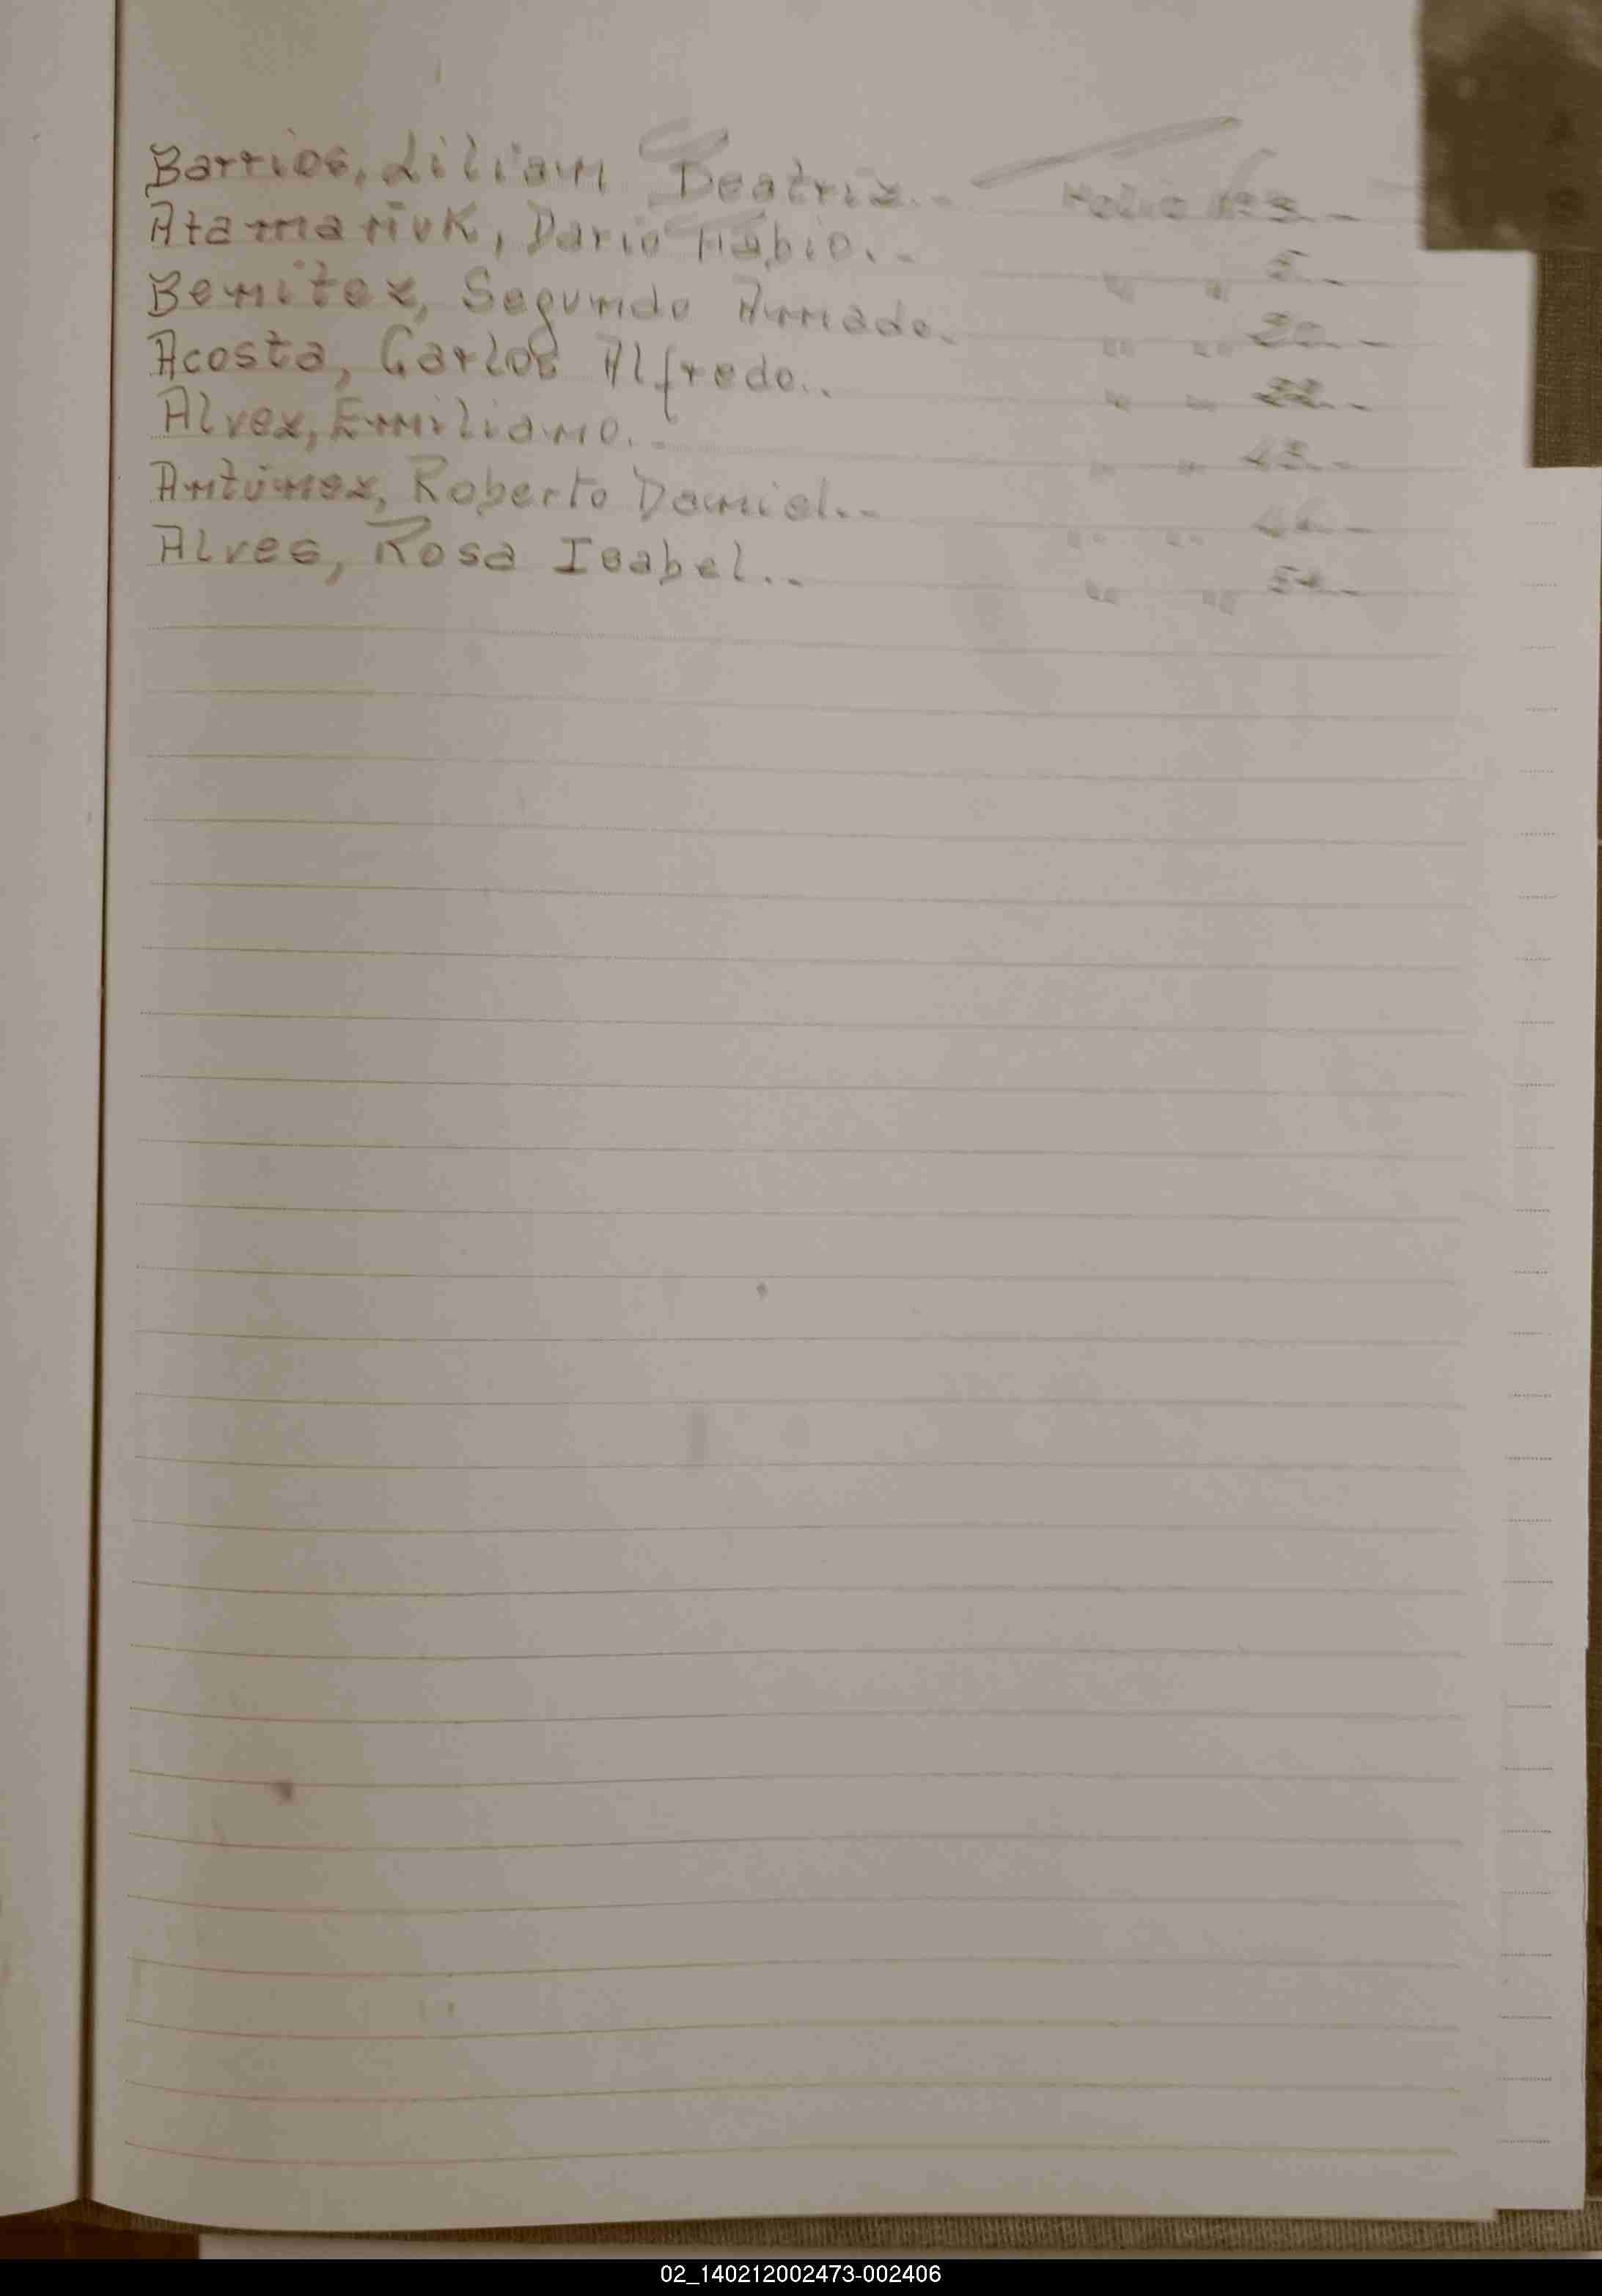 Barrios, Liliam Beatriz.- Folio Nº 3.-
Atamañuk, Dario Fabio.- " " 5.-
Benitez, Segundo Amado.- " " 20.-
Acosta, Carlos Alfredo.- " " 22.-
Alvez, Emiliano.- " " 43.-
Antúnez, Roberto Daniel.- " "
Alves, Rosa Isabel.- " "
02_140212002473-002406